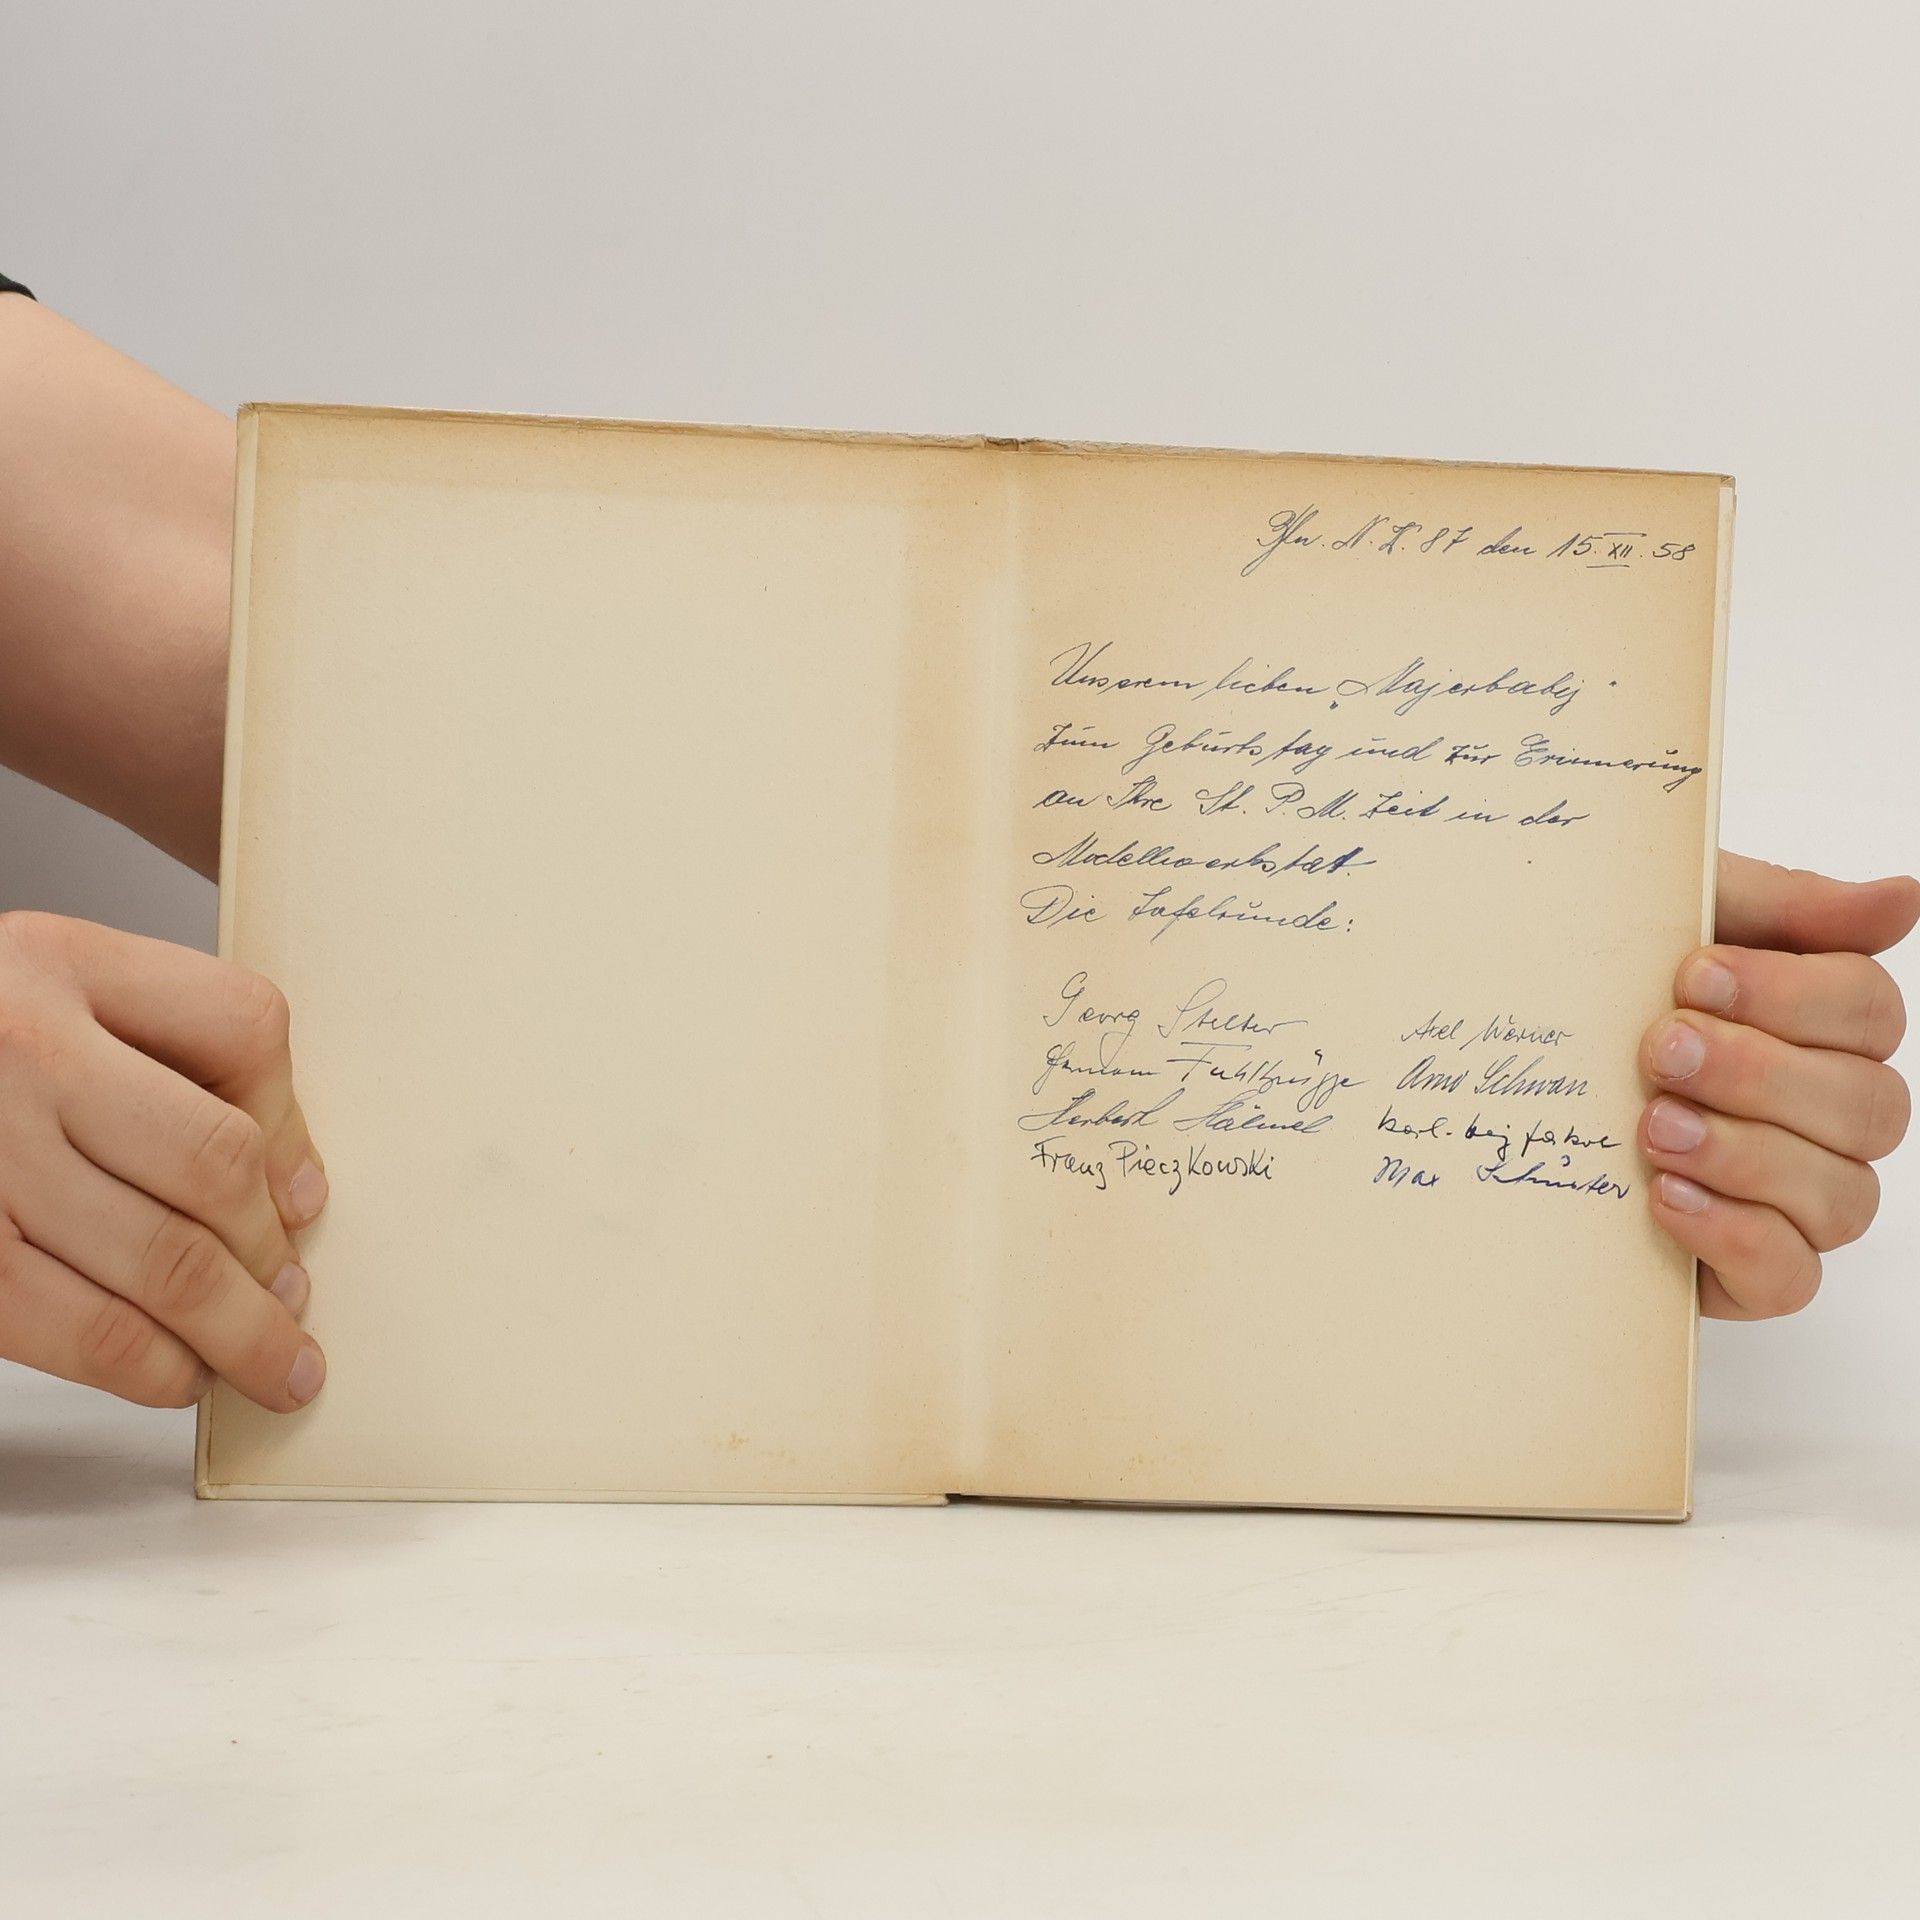 Bln. N. K. 87 den 15. XII. 58
Unserem lieben „Majerbabij"
zum Geburtstag und zur Erinnerung
an Ihre St. P. M. Zeit in der
Modellwerkstat.
Die Tafelrunde:
Georg Stelter Axel Werner
Hermann Fuhlbrügge Arno Schwan
Herbert Karl-
Franz Pieczkowski Max Schuster